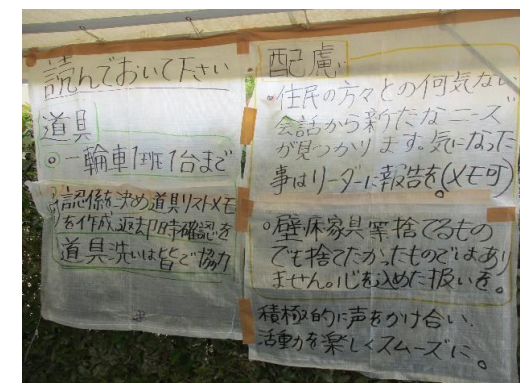 読んでおいて下さい
道具
○一輪車1班1台まで
認係を決め道具リストメモ
を作成、返却時確認を
道具洗いは皆で協力
配慮
○住民の方々との何気ない
会話から新たなニーズ
が見つかります。気になった
事はリーダーに報告を(メモ可)
○壁床家具等捨てるもの
でも捨てたかったものではあり
ません。心を込めた扱いを。
積極的に声をかけ合い、
活動を楽しくスムーズに。